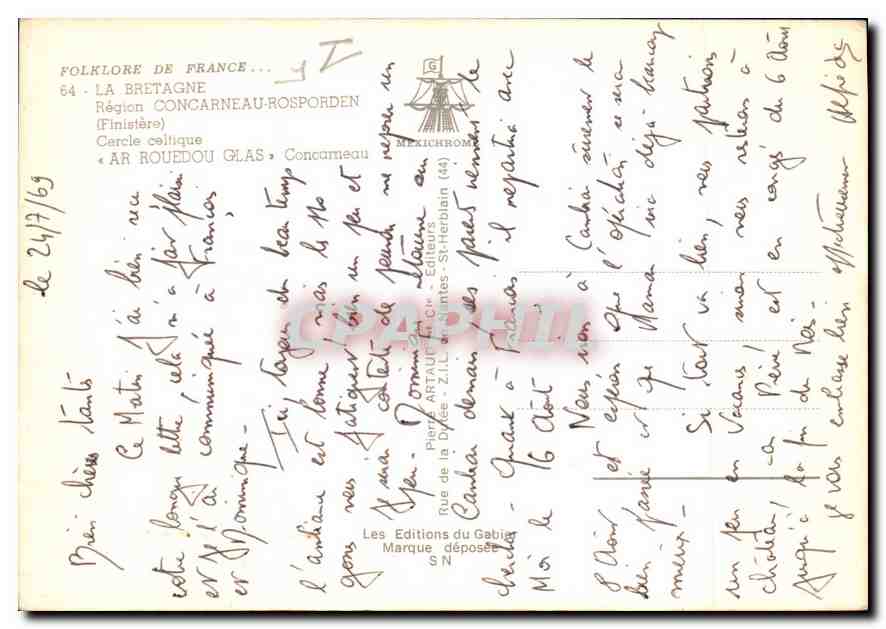 FOLKLORE DE FRANCE...
64 - LA BRETAGNE
Région CONCARNEAU-ROSPORDEN
(Finistère)
Cercle celtique
« AR ROUEDOU GLAS » Concarneau
G
MEXICHROME
Pierre ARTAUD et Cie - Editeurs
Rue de la Dutée - Z.I.L. Nantes - St-Herblain (44)
Les Editions du Gabier
Marque déposée
S N
CPAPHIL
le 24/7/69
Bien chères tantes
Ce Matin J'ai bien recu
votre longue lettre, cela m'a fait plaisir
et Je l'ai communiquée à Francois
et Dominique -
Ici, toujours du beau temps
l'ambiance est bonne, mais les
gours vous fatiguent bien un peu et
Je serai contente de pouvoir me reposer un
peu. Dominique retourne au
demain, ses parents viennent le
chercher - Quant à Francois il repartira avec
Moi le 16 Août -
Nous irons à Cambrai surement le
8 Août et espérons que l'opération se sera
bien passée et que Maman ira déjà beaucoup
mieux -
Si tout va bien, nous partirons
un peu en Vacances, sinon nous resterons à
château, car Pierre est en congé du 6 Août
Jusqu'à la fin du Mois -
Je vous embrasse bien affectueusement